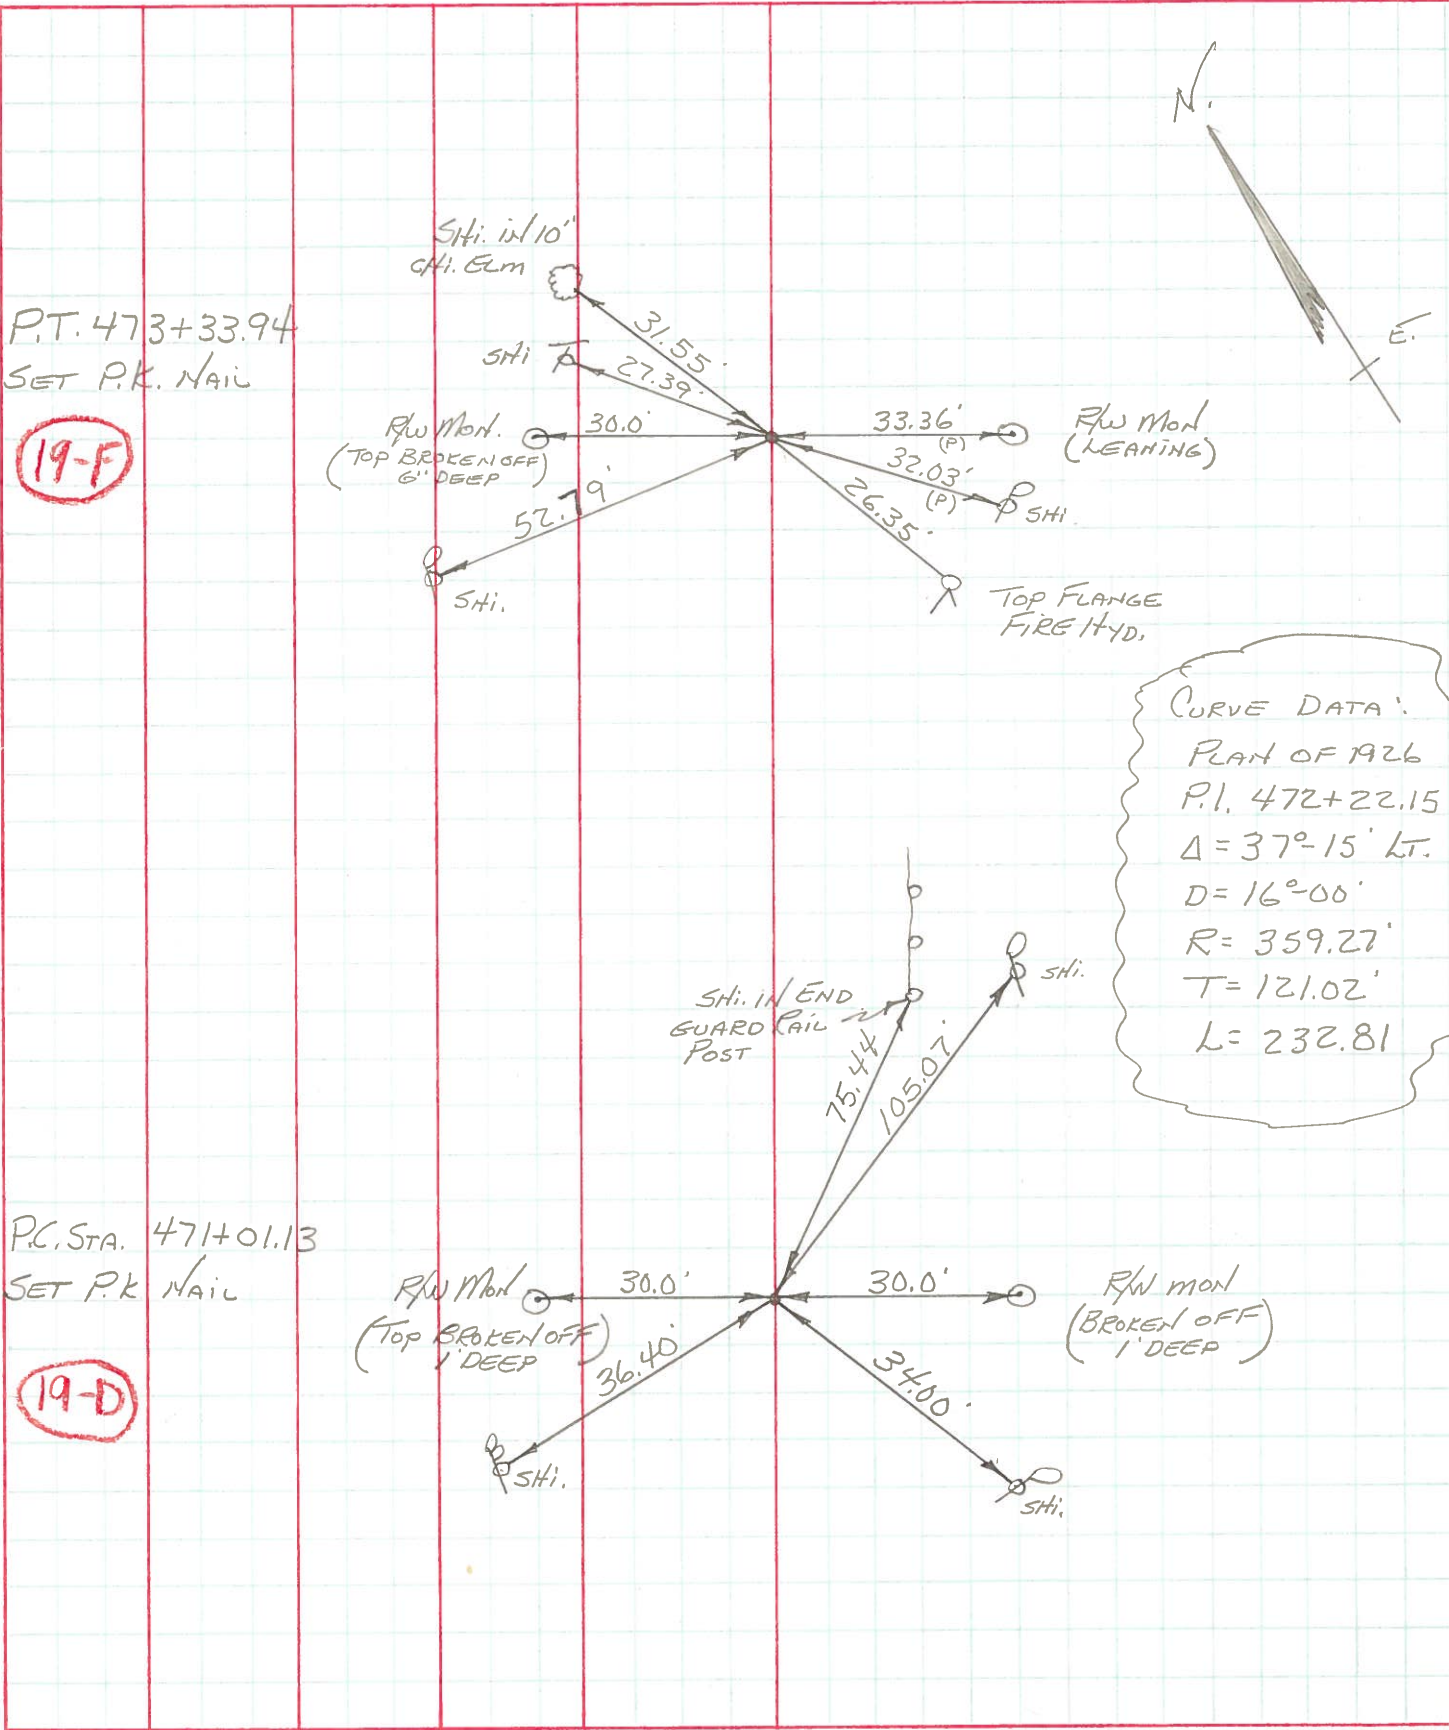 N.
E.
SHi. iN 10"
CHi. ELM
31.55'
P.T. 473+33.94
SET P.K. NAiL
SHi
27.39'
19-F
R/W MON.
(TOP BROKEN OFF)
6" DEEP
30.0'
33.36'
(P)
R/W MON
(LEANING)
32.03'
(P)
SHi.
52.79'
SHi.
26.35'
TOP FLANGE
FIRE HYD.
CURVE DATA:
PLAN OF 1926
P.I. 472+22.15
Δ = 37°-15' LT.
D = 16°-00'
R = 359.27'
T = 121.02'
L = 232.81
SHi.
SHi. IN END
GUARD RAIL
POST
75.44'
105.07'
P.C. STA. 471+01.13
SET P.K NAiL
R/W MON
(TOP BROKEN OFF)
1' DEEP
30.0'
30.0'
R/W MON
(BROKEN OFF)
1' DEEP
19-D
36.40'
34.00'
SHi.
SHi.